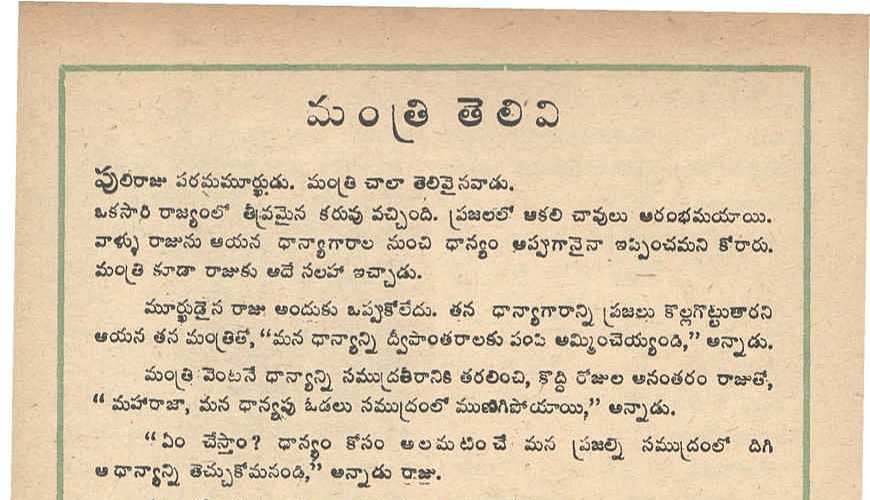 మంత్రి తెలివి
పులిరాజు పరమమూర్ఖుడు. మంత్రి చాలా తెలివైనవాడు.
ఒకసారి రాజ్యంలో తీవ్రమైన కరువు వచ్చింది. ప్రజలలో ఆకలి చావులు ఆరంభమయాయి.
వాళ్ళు రాజును ఆయన ధాన్యాగారాల నుంచి ధాన్యం అప్పుగానైనా ఇప్పించమని కోరారు.
మంత్రి కూడా రాజుకు ఆదే సలహా ఇచ్చాడు.
మూర్ఖుడైన రాజు అందుకు ఒప్పుకోలేదు. తన ధాన్యాగారాన్ని ప్రజలు కొల్లగొట్టుతారని
ఆయన తన మంత్రితో, “మన ధాన్యాన్ని ద్వీపాంతరాలకు పంపి అమ్మించెయ్యండి,” అన్నాడు.
మంత్రి వెంటనే ధాన్యాన్ని సముద్రతీరానికి తరలించి, కొద్ది రోజుల అనంతరం రాజుతో,
“ మహారాజా, మన ధాన్యపు ఓడలు సముద్రంలో ముణిగిపోయాయి,” అన్నాడు.
“ ఏం చేస్తాం ? ధాన్యం కోసం అలమటించే మన ప్రజల్ని సముద్రంలో దిగి
ఆ ధాన్యాన్ని తెచ్చుకోమనండి,” అన్నాడు రాజు.